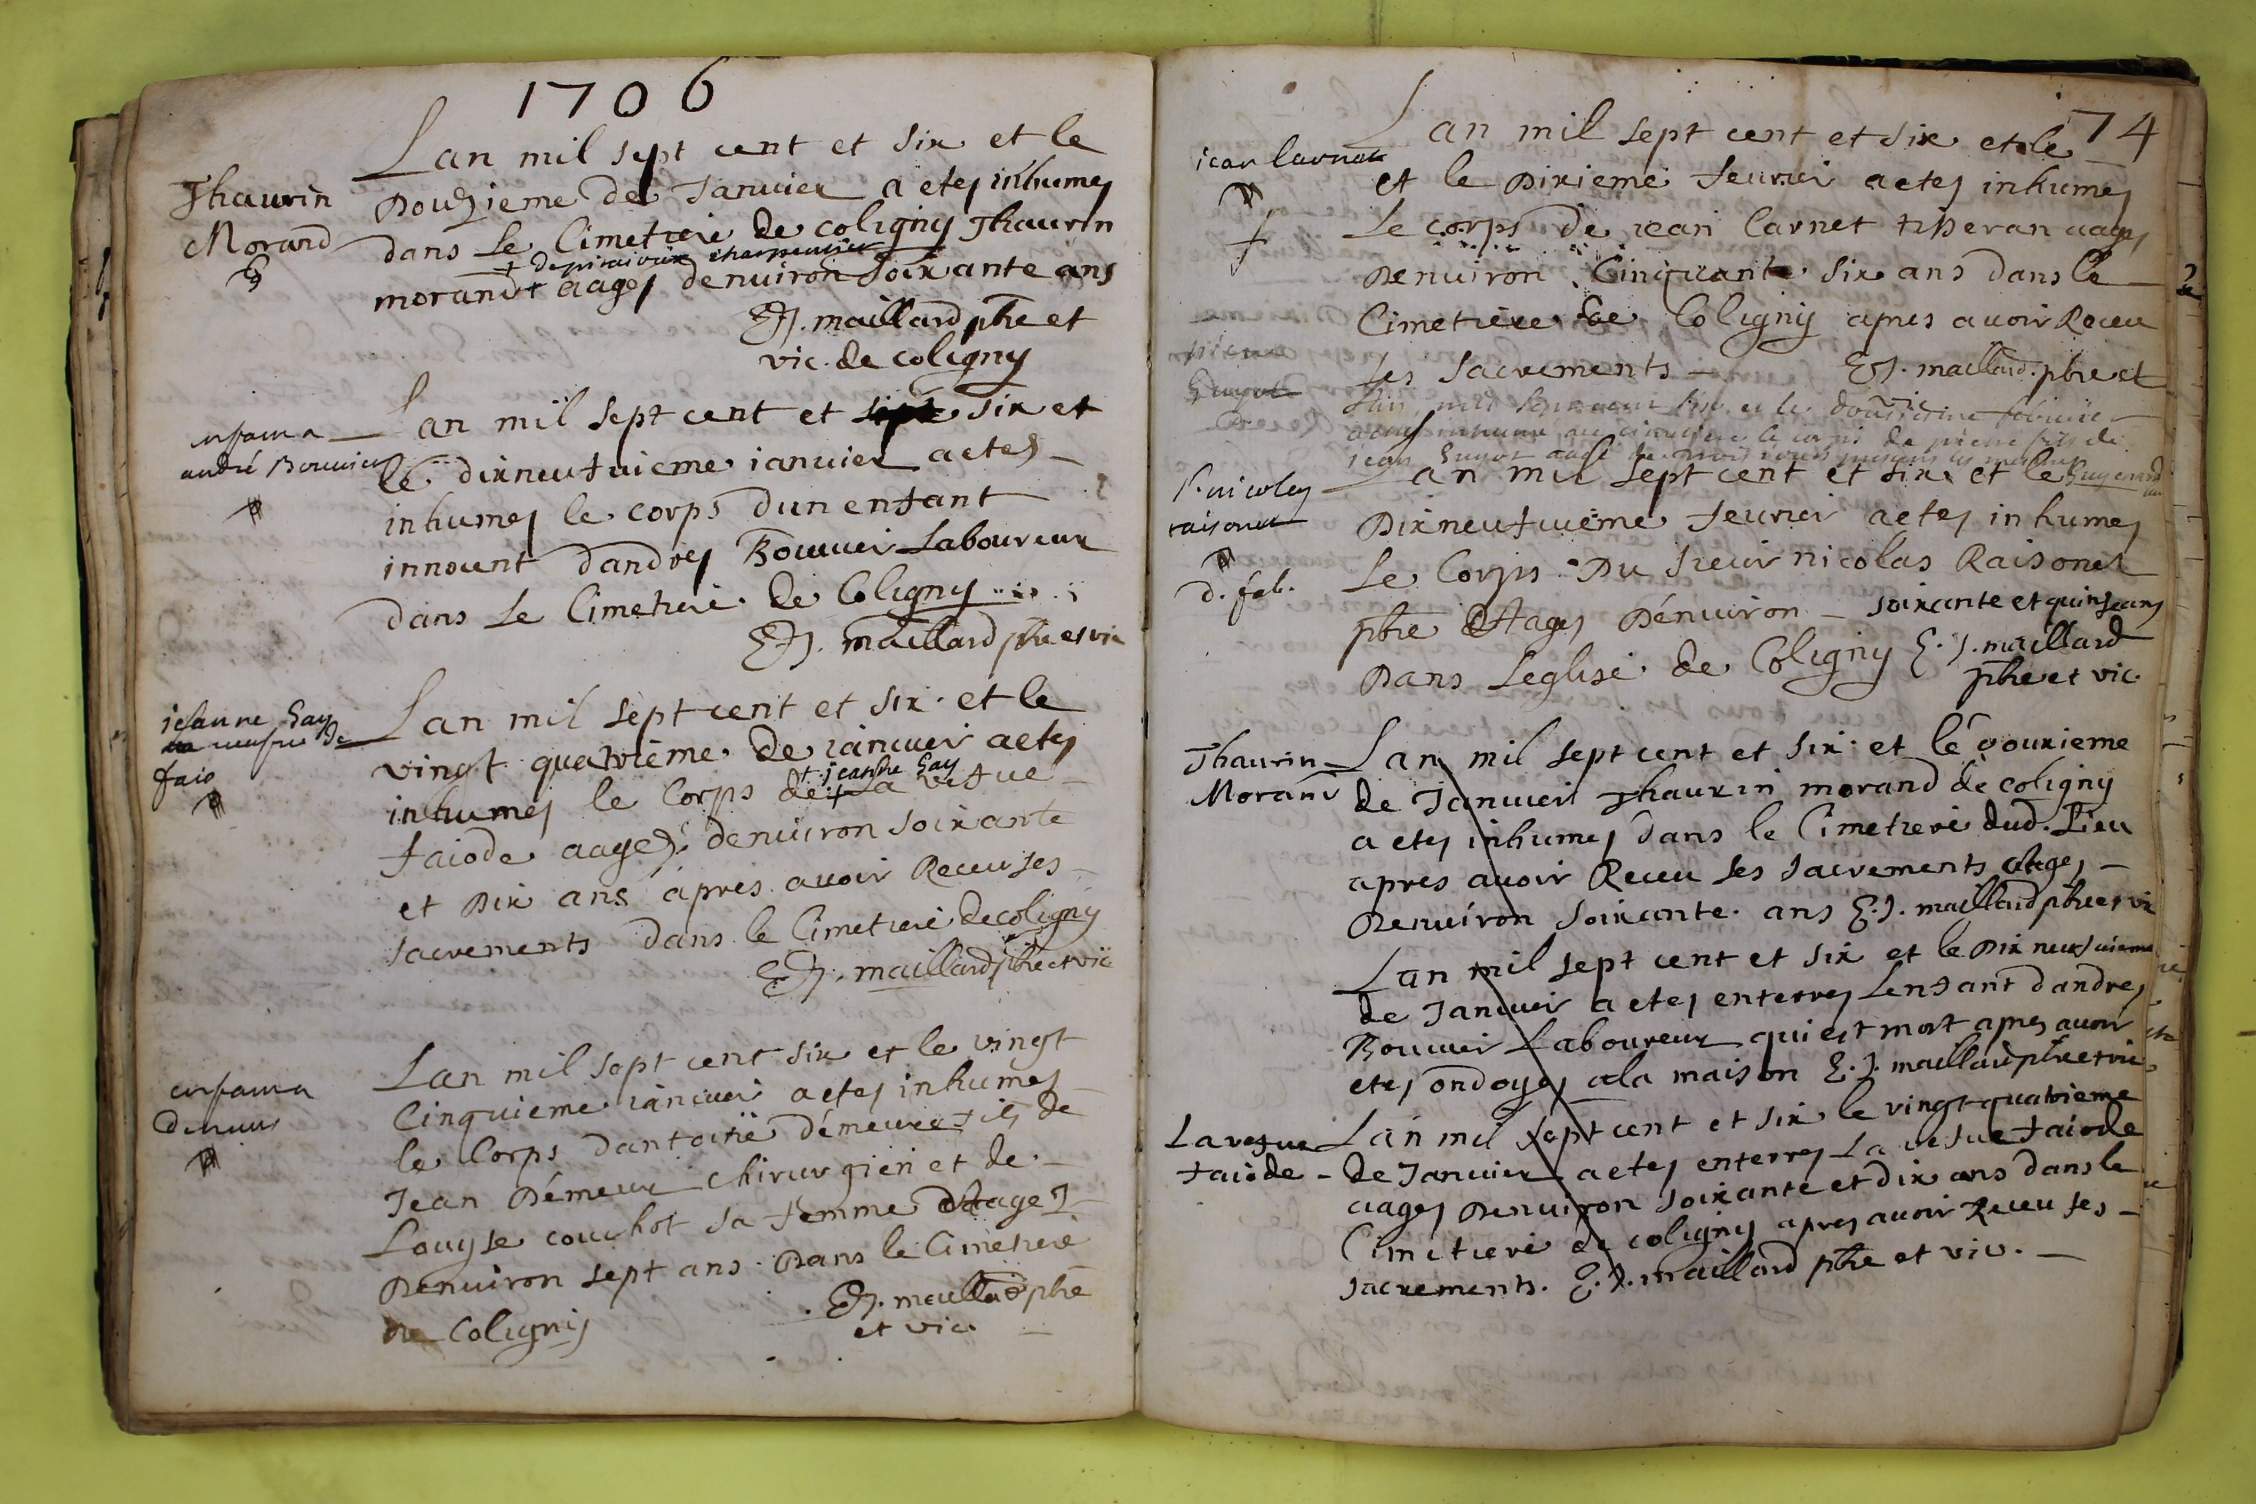 1706
Thaurin
Morand
Lan mil sept cent et six et le
Douzieme de Januier a etes inhumes
dans le Cimetiere de coligny Thaurin
+ charpentier
morand + aages denuiron soixante ans
E.J. maillard pbre et
vic. de coligny
enfant a
andré Bouuier
Lan mil sept cent et six et
le dixneufuieme ianuier a etes
inhumes le corps dun enfant
innocent dandres Bouuier Laboureur
dans le Cimetiere de Coligny
E.J. maillard pbre et vic
jeanne Gay
faio
Lan mil sept cent et six et le
vingt quatrieme de ianuier a etes
+ jeanne Gay
inhumes le Corps de + la vefue
faiode aages denuiron soixante
et Dix ans apres auoir Receu ses
sacrements dans le Cimetiere de coligny
E.J. maillard pbre et vic
enfant a
Lan mil sept cent six et le vingt
Cinquieme ianuier a etes inhumes
le Corps dantoine demeure fils de
Jean Démeur chirurgien et de
Louyse couchot sa femme Aages
Denuiron sept ans Dans le Cimetiere
de Coligny
E.J. maillard pbre
et vic.
74
jean
Lan mil sept cent et six et le
et le Dixieme feurier a etes inhumes
Le corps de jean Carnet tisseran aages
Denuiron Cinquante six ans dans le
Cimetiere de Coligny apres auoir Receu
ses sacrements E.J. maillard pbre et
pierre
Guyot
six et le douzieme feburier
a este inhumé au cimetiere le corps de pierre fils de
jean Guyot aagé de
S. nicolas
raisonet
d. fab.
Lan mil sept cent et six et le
Dixneufuieme feurier a etes inhumes
Le Corps Du sieur nicolas Raisonet
pbre Aages Dénuiron soixante et quinse ans
Dans Leglise de Coligny E.J. maillard
pbre et vic.
Thaurin
Morand
Lan mil sept cent et six et lé douxieme
de Januier Thaurin morand de coligny
a etes inhumes dans le Cimetiere dud. Lieu
apres auoir Receu ses sacrements Aages
Denuiron soixante ans E.J. maillard pbre et vic
Lan mil sept cent et six et le Dix neufuieme
de Januier a etes enterres Lenfant dandres
Bouuier Laboureur qui est mort apres auoir
etes ondoyes a la maison E.J. maillard pbre et vic
La vefue
faiode
Lan mil sept cent et six le vingt quatrieme
de Januier a etes enterres La vefue faiode
aages Denuiron soixante et dix ans dans le
Cimetiere de coligny apres auoir Receu ses
sacrements. E.J. maillard pbre et vic.